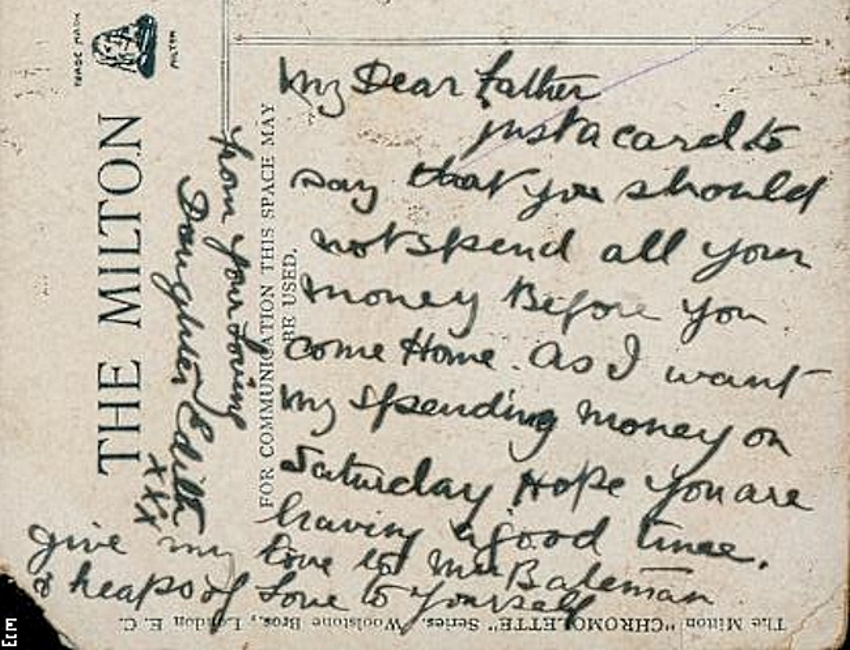 My Dear Father
just a card to
say that you should
not spend all your
money Before you
come Home. As I want
my spending money on
Saturday Hope you are
having a good time.
give my love to Mr Bateman
& heaps of Love to yourself
from your loving
Daughter Edith
xxx
TRADE MARK
MILTON
THE MILTON
FOR COMMUNICATION THIS SPACE MAY
BE USED.
The Milton "CHROMOLETTE" Series. Woolstone Bros., London E. C.
Ecm